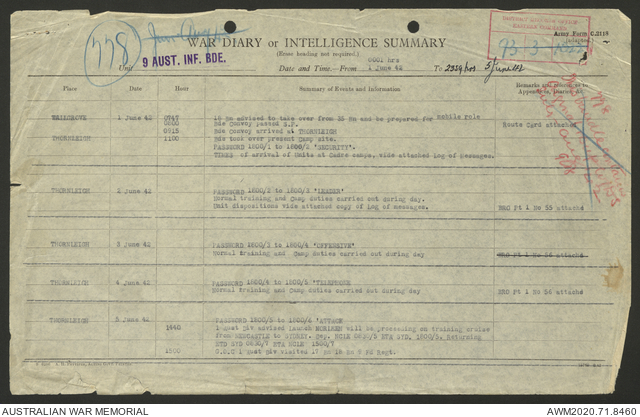 778
WAR DIARY or INTELLIGENCE SUMMARY
(Erase heading not required.)
Army Form C.2118
Unit 9 AUST. INF. BDE.
Date and Time—From 0001 hrs 1 June 42 To 2359 hrs 5 June 42
Place Date Hour Summary of Events and Information Remarks and references to Appendices,
WALLGROVE 1 June 42 0747 18 Bn advised to take over from 35 Bn and be prepared for mobile role
0800 Bde Convoy passed S.P. Route Card attached
0915 Bde Convoy arrived at THORNLEIGH
THORNLEIGH 1100 Bde took over present Camp site.
PASSWORD 1800/1 to 1800/2 'SECURITY'.
TIMES of arrival of Units at Cadre camps, vide attached Log of messages.
THORNLEIGH 2 June 42 PASSWORD 1800/2 to 1800/3 'LEADER'
Normal training and Camp duties carried out during day.
Unit dispositions vide attached copy of Log of messages. BRO Pt 1 No 55 attached
THORNLEIGH 3 June 42 PASSWORD 1800/3 to 1800/4 'OFFENSIVE'
Normal training and Camp duties carried out during day BRO Pt 1 No 56 attached
THORNLEIGH 4 June 42 PASSWORD 1800/4 to 1800/5 'TELEPHONE'
Normal training and Camp duties carried out during day BRO Pt 1 No 56 attached
THORNLEIGH 5 June 42 PASSWORD 1800/5 to 1800/6 'ATTACK'
1440 1 Aust Div advised launch will be proceeding on training cruise
from NEWCASTLE to SYDNEY. Dep. NCLE 0830/5 ETA SYD. 1800/5. Returning
ETD SYD 0830/7 ETA NCLE 1800/7
1500 G.O.C 1 Aust Div visited 17 Bn 18 Bn & Regt.
AUSTRALIAN WAR MEMORIAL
AWM2020.71.8460